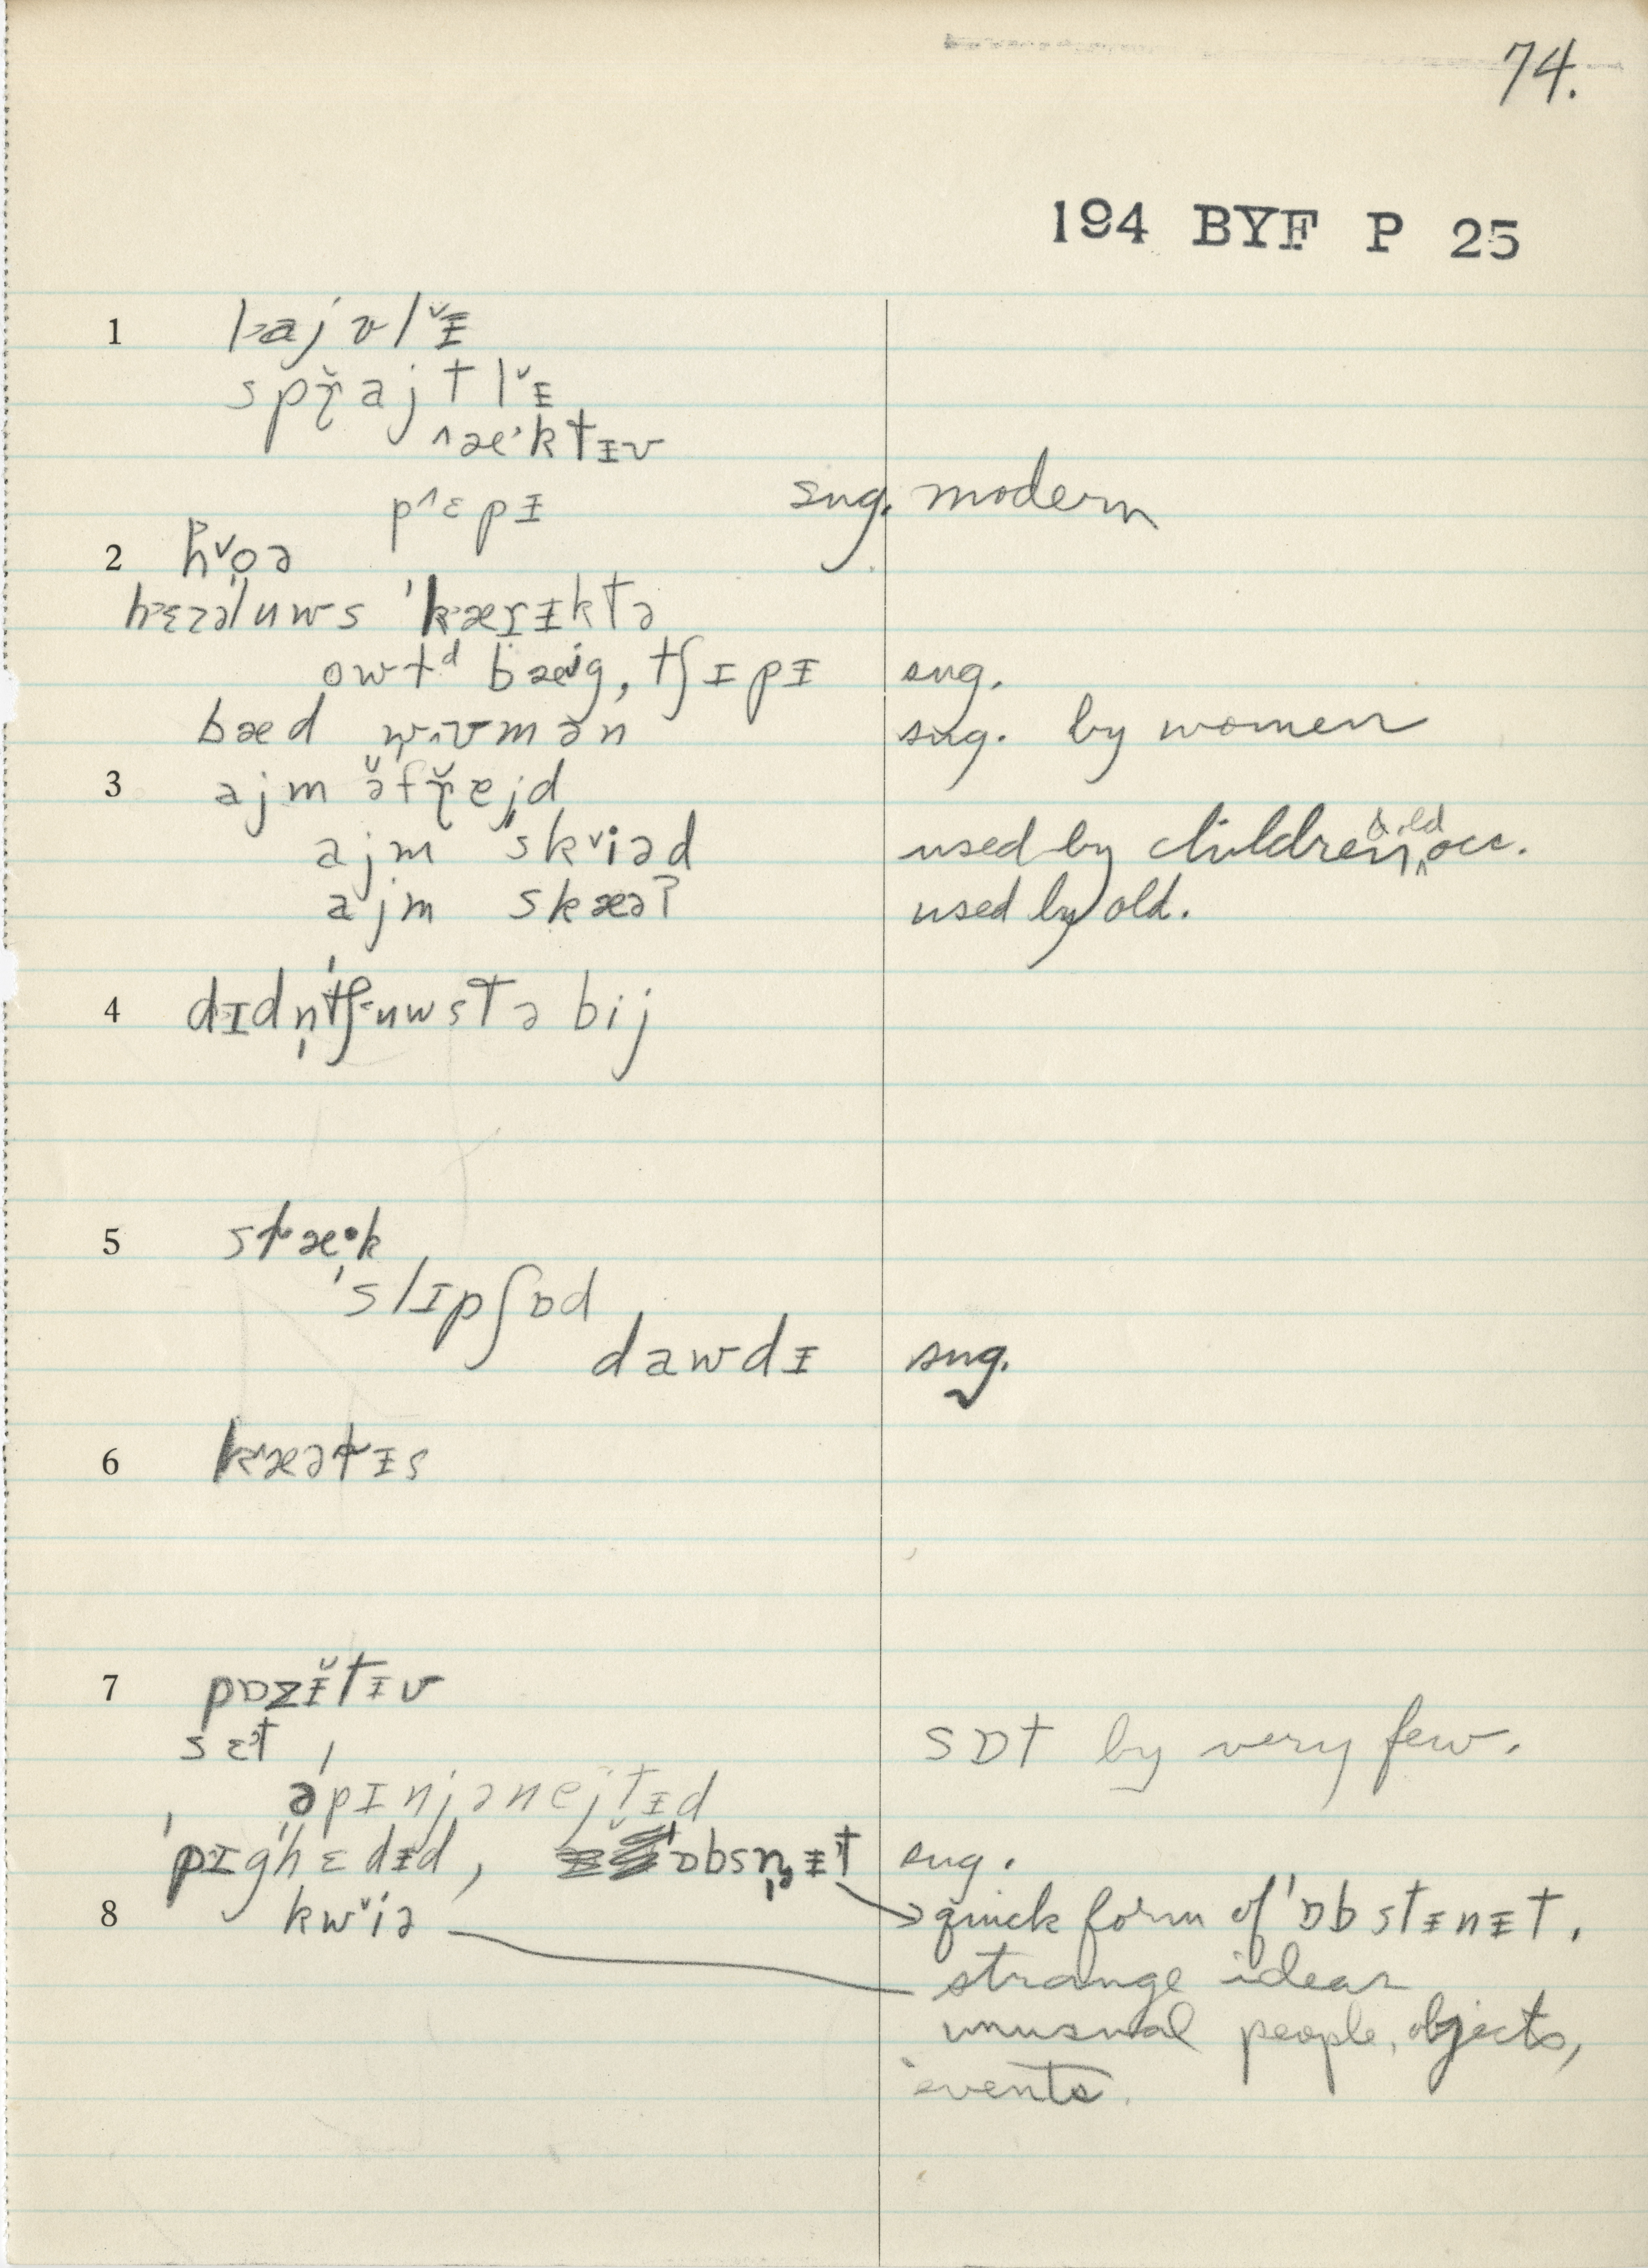 74.
194 BYF P 25
1 lajvlɪ̵
sprajtlɪ̵
æktɪ̵v
pɛpɪ̵ sug. modern
2 hoə
hɛzəluws ˈkærɪ̵ktə
owtᵈ bæig, tʃɪpɪ̵ sug.
bæd wʊmən sug. by women
3 ajm əfrejd
ajm skiəd used by children & old occ.
ajm skæəʔ used by old.
4 dɪdn̩tʃuwstə bij
5 stæ·k
ˈslɪpʃɒd
dawdɪ̵ sug.
6 kæətɪ̵s
7 pɒzɪ̵̆tɪ̵v
sɛt, sɒt by very few.
əˈpɪnjənejtɪ̵d
ˈpɪgˈhɛdɪ̵d, ˈɒbsn̩ɪ̵t sug.
8 kwiə quick form of ˈɒbstɪ̵nɪ̵t.
strange ideas
unusual people, objects,
events.